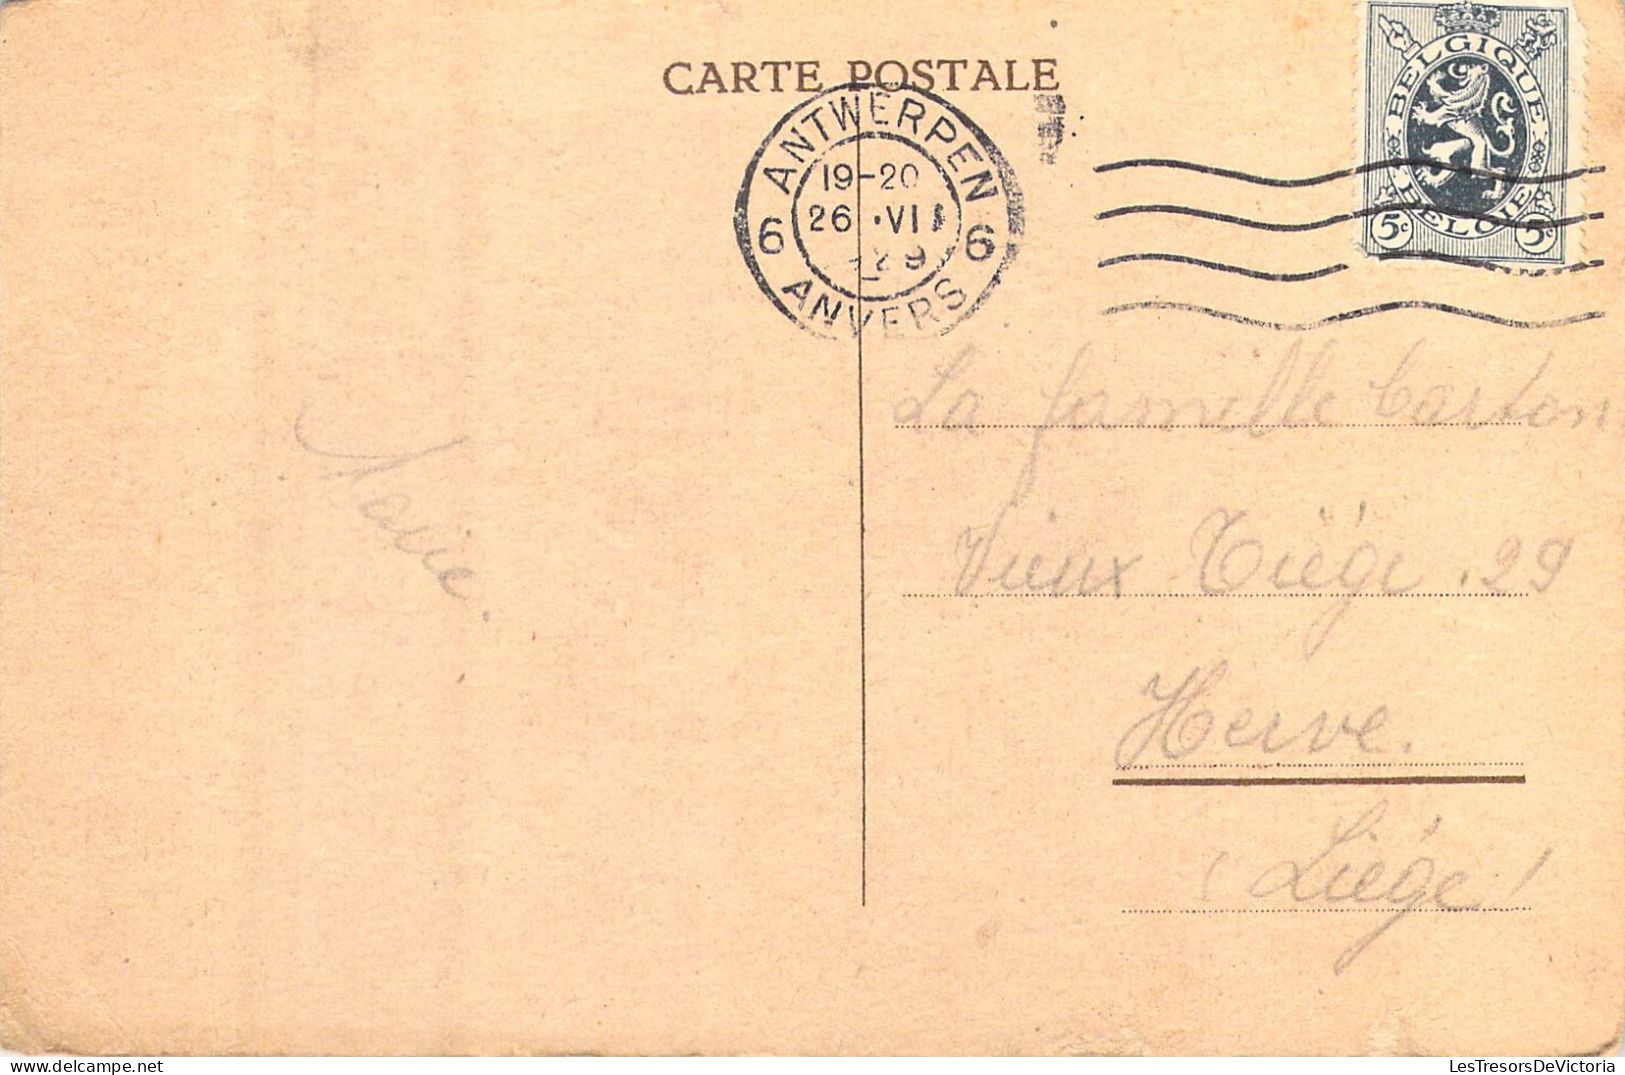 CARTE POSTALE
BELGIQUE
BELGIE
5c 5c
ANTWERPEN
19-20
26 . VII
29
6 6
ANVERS
La famille Carton
Vieux Tiège . 29
Herve.
(Liége)
Marie.
LesTresorsDeVictoria